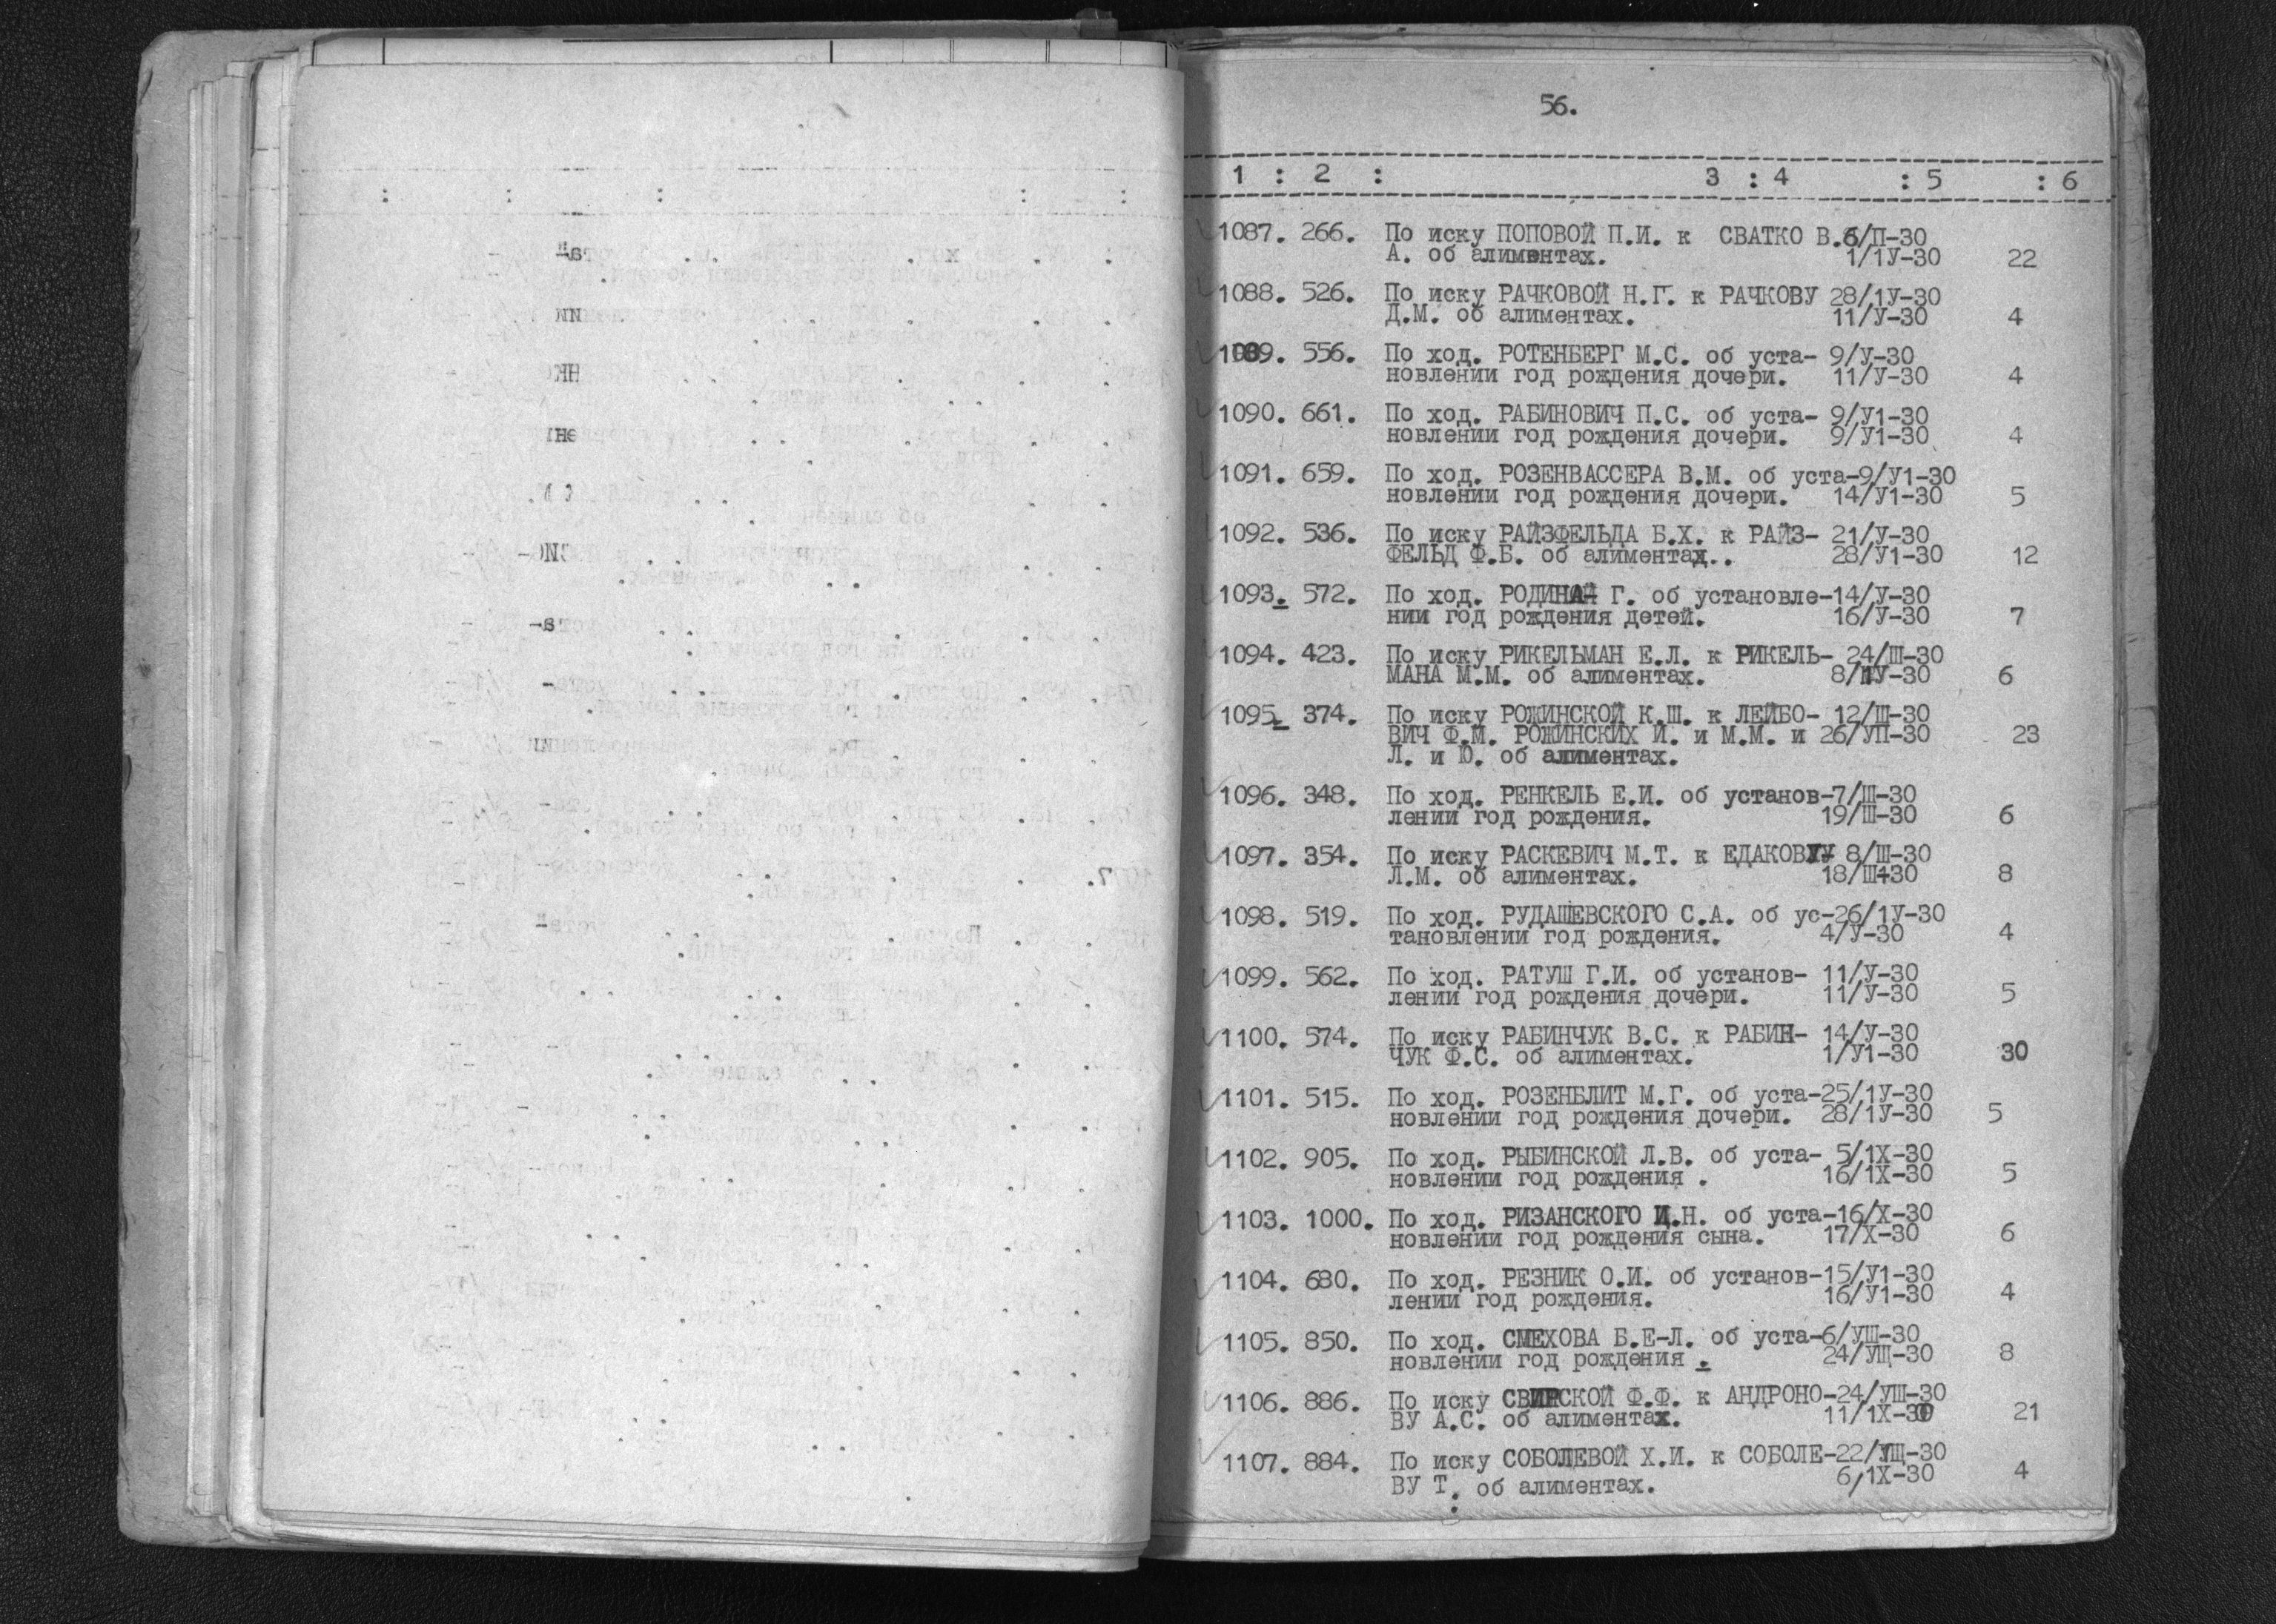 56.
1 : 2 : 3 : 4 : 5 : 6
1087. 266. По иску ПОПОВОЙ П.И. к СВАТКО В. 6/П-30
А. об алиментах. 1/1У-30 22
1088. 526. По иску РАЧКОВОЙ Н.Г. к РАЧКОВУ 28/1У-30
Д.М. об алиментах. 11/У-30 4
1089. 556. По ход. РОТЕНБЕРГ М.С. об уста- 9/У-30
новлении год рождения дочери. 11/У-30 4
1090. 661. По ход. РАБИНОВИЧ П.С. об уста- 9/У1-30
новлении год рождения дочери. 9/У1-30 4
1091. 659. По ход. РОЗЕНВАССЕРА В.М. об уста-9/У1-30
новлении год рождения дочери. 14/У1-30 5
1092. 536. По иску РАЙЗФЕЛЬДА Б.Х. к РАЙЗ- 21/У-30
ФЕЛЬД Ф.Б. об алиментах.. 28/У1-30 12
1093. 572. По ход. РОДИНОЙ Г. об установле-14/У-30
нии год рождения детей. 16/У-30 7
1094. 423. По иску РИКЕЛЬМАН Е.Л. к РИКЕЛЬ- 24/Ш-30
МАНА М.М. об алиментах. 8/1У-30 6
1095. 374. По иску РОЖИНСКОЙ К.Ш. к ЛЕЙБО- 12/Ш-30
ВИЧ Ф.М. РОЖИНСКИХ И. и М.М. и 26/УП-30 23
Л. и Ю. об алиментах.
1096. 348. По ход. РЕНКЕЛЬ Е.И. об установ-7/Ш-30
лении год рождения. 19/Ш-30 6
1097. 354. По иску РАСКЕВИЧ М.Т. к ЕДАКОВУ 8/Ш-30
Л.М. об алиментах. 18/Ш-30 8
1098. 519. По ход. РУДАШЕВСКОГО С.А. об ус-26/1У-30
тановлении год рождения. 4/У-30 4
1099. 562. По ход. РАТУШ Г.И. об установ- 11/У-30
лении год рождения дочери. 11/У-30 5
1100. 574. По иску РАБИНЧУК В.С. к РАБИН- 14/У-30
ЧУК Ф.С. об алиментах. 1/У1-30 30
1101. 515. По ход. РОЗЕНБЛИТ М.Г. об уста-25/1У-30
новлении год рождения дочери. 28/1У-30 5
1102. 905. По ход. РЫБИНСКОЙ Л.В. об уста- 5/1Х-30
новлении год рождения . 16/1Х-30 5
1103. 1000. По ход. РИЗАНСКОГО Ц.Н. об уста-16/Х-30
новлении год рождения сына. 17/Х-30 6
1104. 680. По ход. РЕЗНИК О.И. об установ-15/У1-30
лении год рождения. 16/У1-30 4
1105. 850. По ход. СМЕХОВА Б.Е-Л. об уста-6/УШ-30
новлении год рождения . 24/УЩ-30 8
1106. 886. По иску СВИРСКОЙ Ф.Ф. к АНДРОНО-24/УШ-30
ВУ А.С. об алиментах. 11/1Х-30 21
1107. 884. По иску СОБОЛЕВОЙ Х.И. к СОБОЛЕ-22/УЩ-30
ВУ Т. об алиментах. 6/1Х-30 4